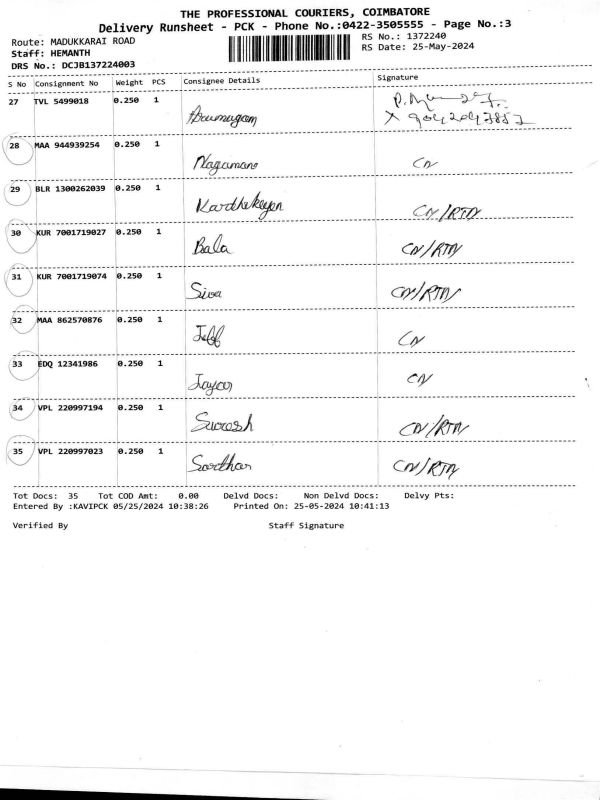 THE PROFESSIONAL COURIERS, COIMBATORE
Delivery Runsheet - PCK - Phone No.:0422-3505555 - Page No.:3
Route: MADUKKARAI ROAD RS No.: 1372240
Staff: HEMANTH RS Date: 25-May-2024
DRS No.: DCJB137224003
S No Consignment No Weight PCS Consignee Details Signature
27 TVL 5499018 0.250 1
28 MAA 944939254 0.250 1 Nagamani CN
29 BLR 1300262039 0.250 1 Karthekeyan CN/RTN
30 KUR 7001719027 0.250 1 Bala CN/RTN
31 KUR 7001719074 0.250 1 Siva CN/RTN
32 MAA 862570876 0.250 1 Jeff CN
33 EDQ 12341986 0.250 1 CN
34 VPL 220997194 0.250 1 Suresh CN/RTN
35 VPL 220997023 0.250 1 CN/RTN
Tot Docs: 35 Tot COD Amt: 0.00 Delvd Docs: Non Delvd Docs: Delvy Pts:
Entered By :KAVIPCK 05/25/2024 10:38:26 Printed On: 25-05-2024 10:41:13
Verified By Staff Signature